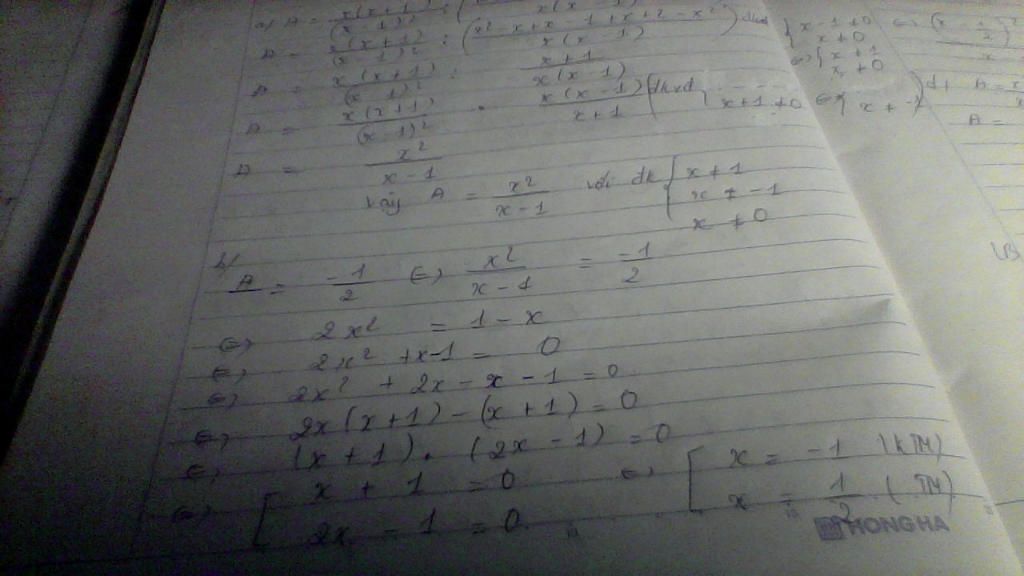 a) A = x(x+1) / (x-1)² : (
A = x(x+1) / (x-1)² : ( x²-x+x-1+x+2-x² / x(x-1) ) đkxđ { x-1≠0
x≠0
⇔ { x≠1
x≠0
A = x(x+1) / (x-1)² : x+1 / x(x-1)
A = x(x+1) / (x-1)² . x(x-1) / x+1 (đkxđ { x+1≠0 ⇔ { x≠-1 )
A = x² / x-1
vậy A = x² / x-1 với đk { x≠1
x≠-1
x≠0
b/
A = -1/2 ⇔ x² / x-1 = -1/2
⇔ 2x² = 1-x
⇔ 2x² +x-1 = 0
⇔ 2x² + 2x - x - 1 = 0
⇔ 2x(x+1) - (x+1) = 0
⇔ (x+1). (2x-1) = 0
⇔ [ x + 1 = 0 ⇔ [ x = -1 (KTM)
2x - 1 = 0. x = 1/2 (TM)
HONG HA
d, A =
A =